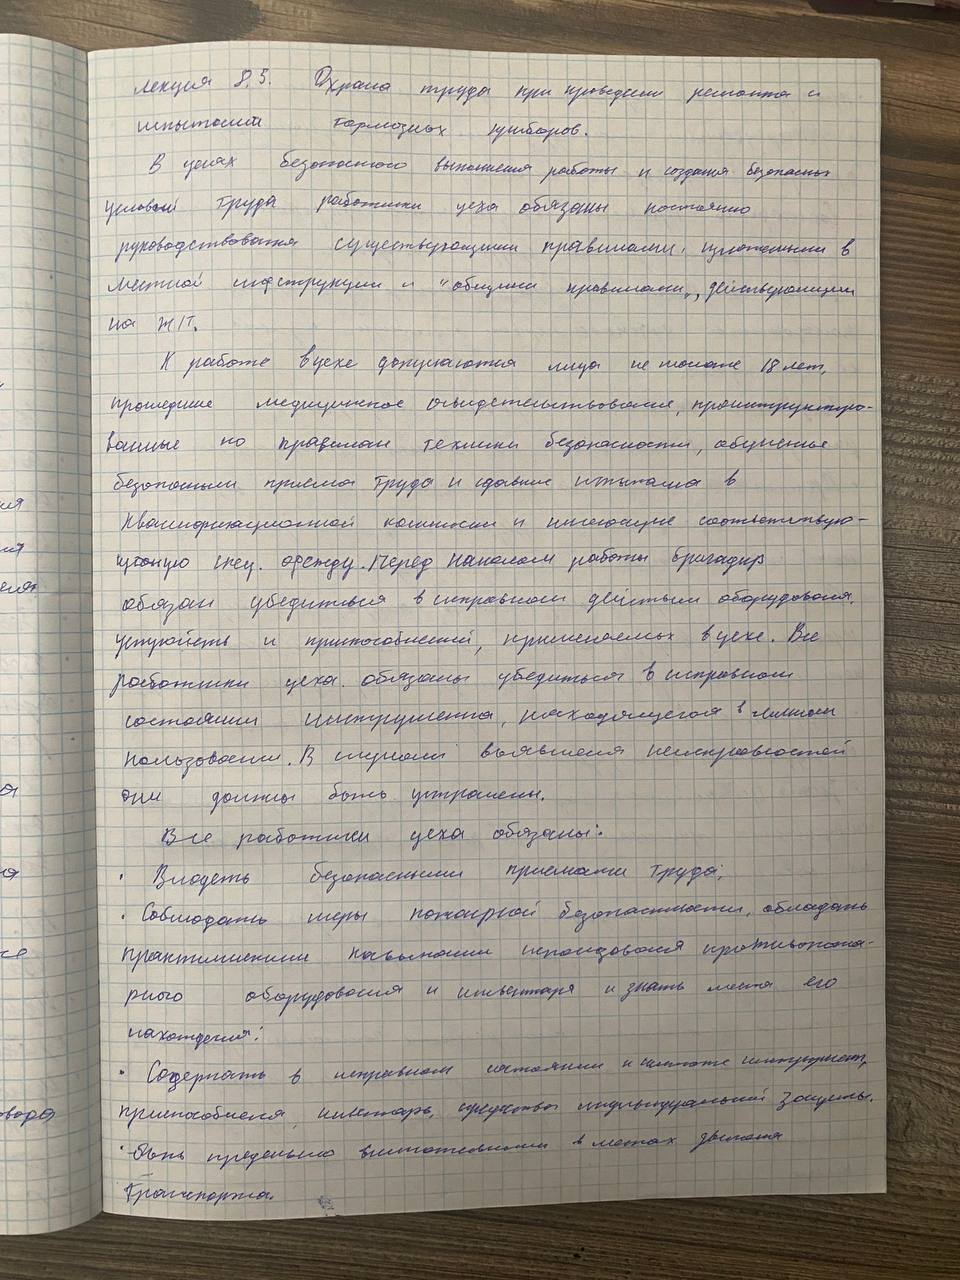 Лекция 8.5. Охрана труда при проведении ремонта и
испытаний тормозных приборов.
В целях безопасного выполнения работы и создания безопасных
условий труда работники цеха обязаны постоянно
руководствоваться существующими правилами, изложенными в
местной инструкции и "общими правилами", действующими
на ЖТ.
К работе в цехе допускаются лица не моложе 18 лет,
прошедшие медицинское освидетельствование, проинструктиро-
ванные по правилам техники безопасности, обученные
безопасным приёмам труда и сдавшие испытания в
квалификационной комиссии и имеющие соответствую-
щую спец. одежду. Перед началом работы бригадир
обязан убедиться в исправном действии оборудования,
устройств и приспособлений, применяемых в цехе. Все
работники цеха обязаны убедиться в исправном
состоянии инструмента, находящегося в личном
пользовании. В случаи выявления неисправностей
они должны быть устранены.
Все работники цеха обязаны:
· Владеть безопасными приемами труда;
· Соблюдать меры пожарной безопасности, обладать
практическими навыками использования противопожа-
рного оборудования и инвентаря и знать места его
нахождения;
· Содержать в исправном состоянии и чистоте инструмент,
приспособления, инвентарь, средства индивидуальной защиты.
· Быть предельно внимательными в местах движения
транспорта.
ия
ия
ения
я
я
овара